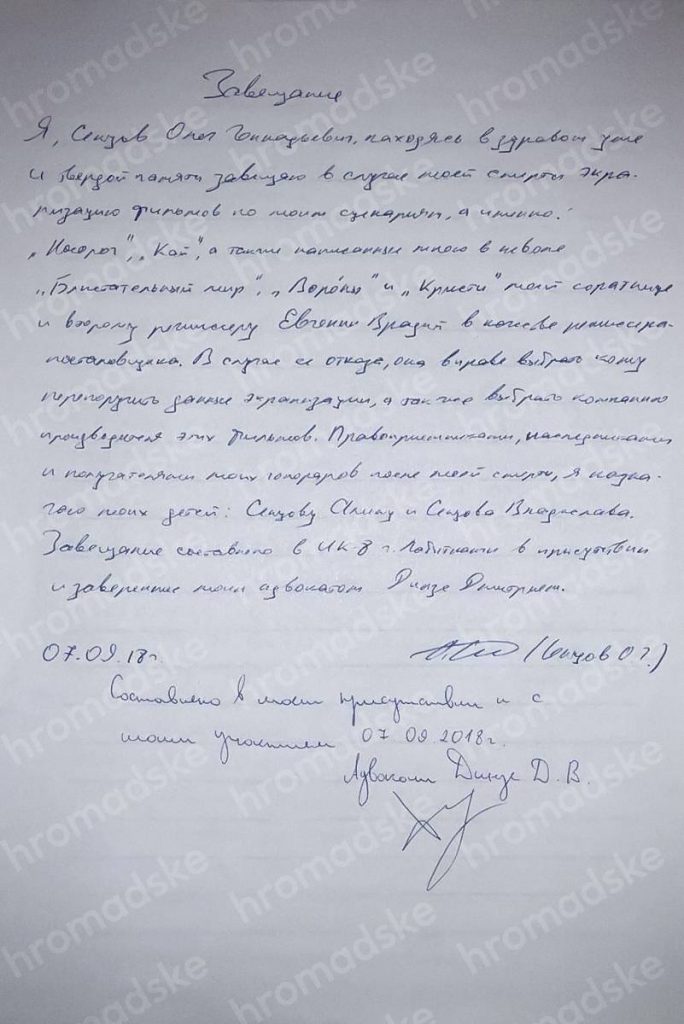 Завещание
Я, Сенцов Олег Геннадьевич, находясь в здравом уме
и твердой памяти завещаю в случае моей смерти экра-
низацию фильмов по моим сценариям, а именно:
„Носорог", „Кай", а также написанные мною в неволе
„Блистательный мир", „Воро́ны" и „Крысти" моей соратнице
и второму режиссеру Евгении Врадий в качестве режиссера-
постановщика. В случае ее отказа, она вправе выбрать кому
перепоручить данные экранизации, а так же выбрать компанию
производителя этих фильмов. Правоприемниками, наследниками
и получателями моих гонораров после моей смерти, я назна-
чаю моих детей: Сенцову Алину и Сенцова Владислава.
Завещание составлено в ИК-8 г. Лабытнанги в присутствии
и заверенное моим адвокатом Динзе Дмитрием.
07.09.18г. (Сенцов О Г.)
Составлено в моем присутствии и с
моим участием 07.09.2018г.
Адвокат Динзе Д. В.
hromadske